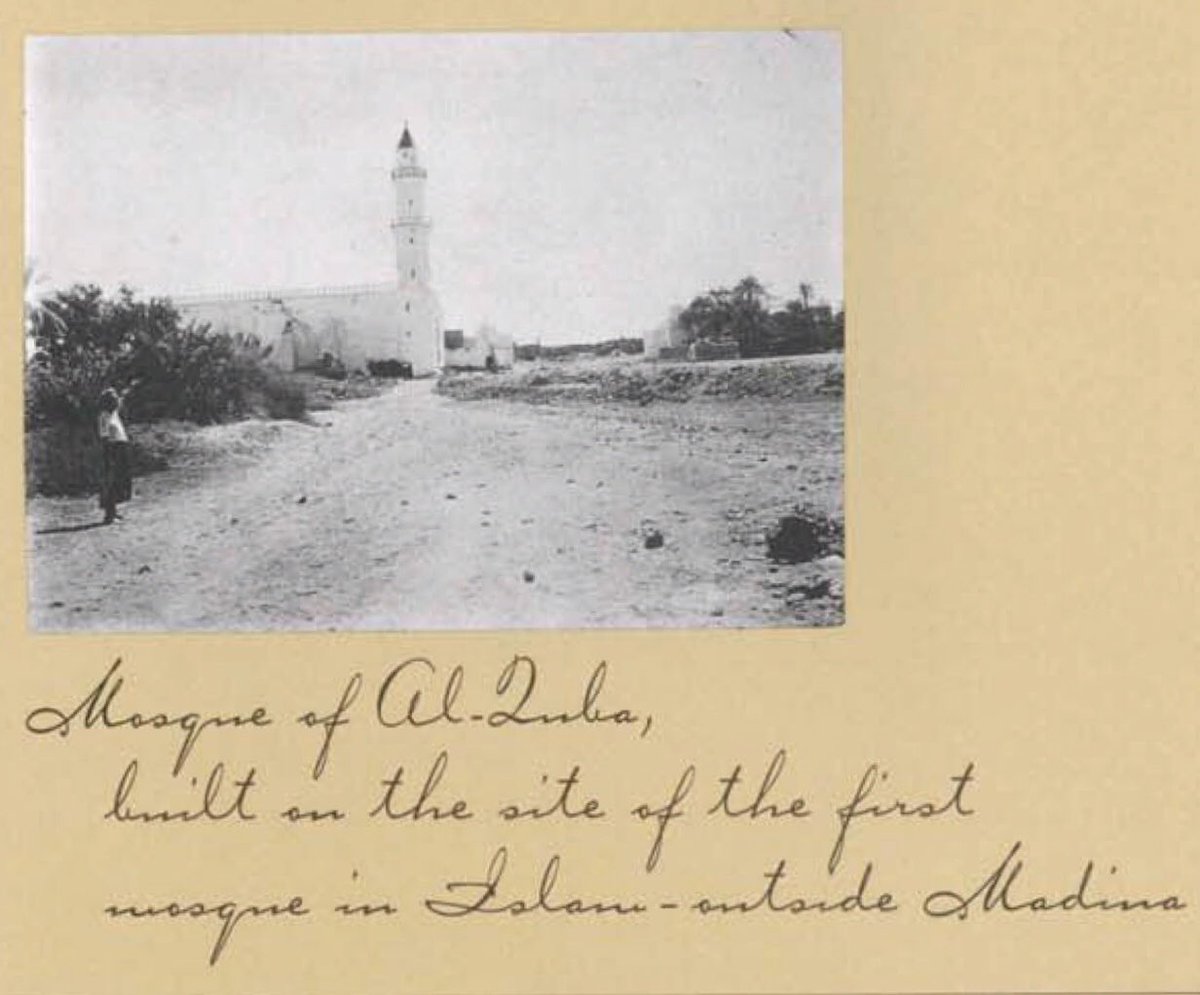 Mosque of Al-Quba,
built on the site of the first
mosque in Islam - outside Madina